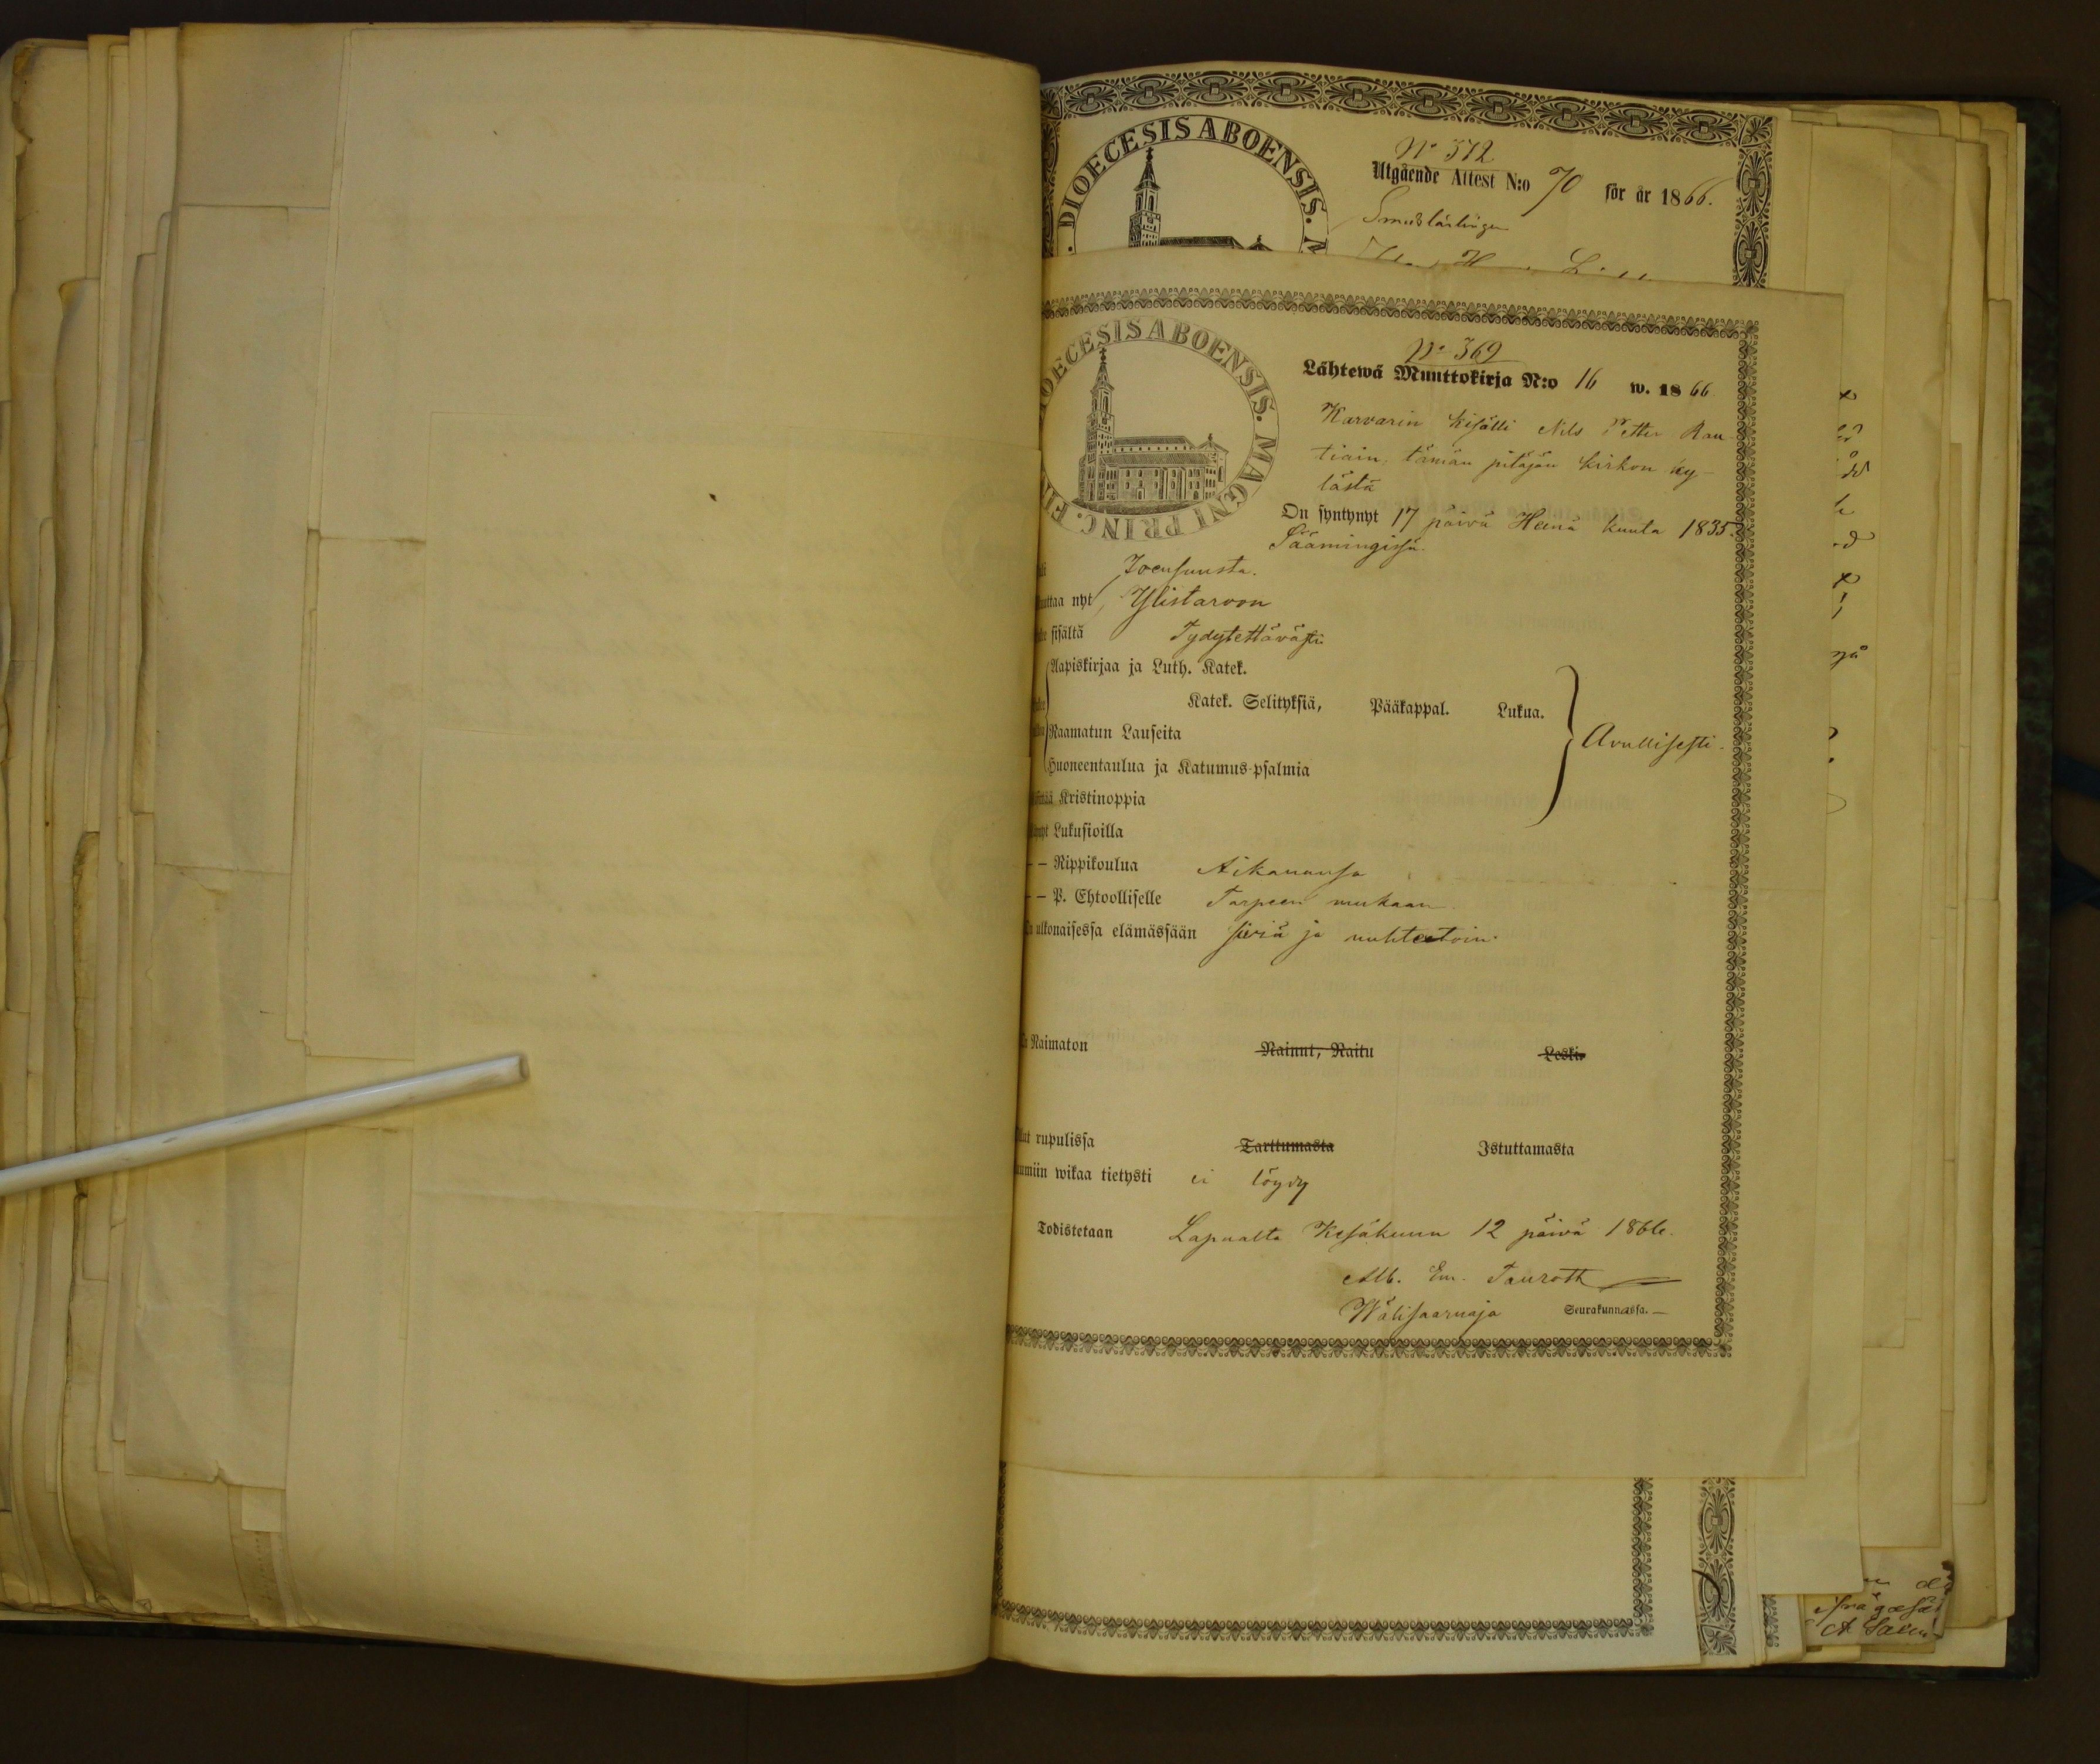 DIOECESIS ABOENSIS. M
No 372
Utgående Attest N:o 70 för år 1866.
Smedslärlingen
OECESIS ABOENSIS. MAGNI PRINC. FIN
No 369
Lähtewä Muuttokirja N:o 16 w. 1866
Karvarin kisälli Nils Petter Rau-
tiain, tämän pitäjän kirkon ky-
lästä
On syntynyt 17 päivä Heinä kuuta 1835.
Säämingissä.
Joensuusta.
uttaa nyt Ylistaroon
sisältä Tydytettävästi
Aapiskirjaa ja Luth. Katek.
Katek. Selityksiä, Pääkappal. Lukua.
Raamatun Lauseita
Avullisesti.
Huoneentaulua ja Katumus-psalmia
Kristinoppia
Lukusioilla
— Rippikoulua Aikanansa
— P. Ehtoolliselle Tarpeen mukaan.
ulkonaisessa elämässään siviä ja nuhtetoin.
Naimaton Nainut, Naitu Leski
rupulissa Tarttumasta Istuttamasta
umiin wikaa tietysti ei löydy
Todistetaan Lapualta Kesäkuun 12 päivä 1866.
Alb. Em. Tauroth
Wälisaarnaja Seurakunnassa.